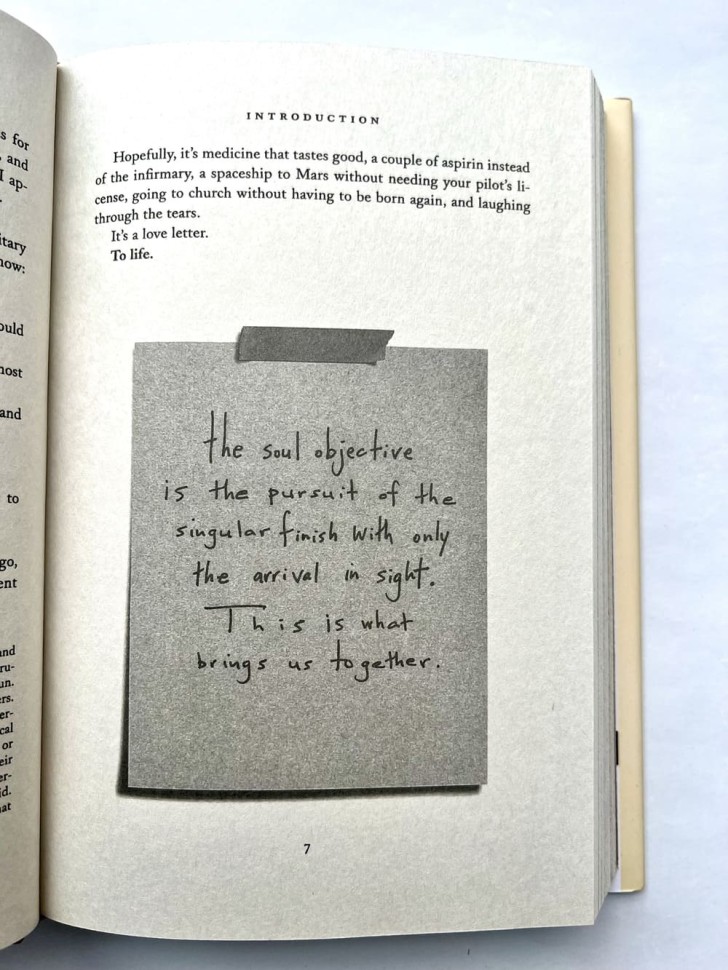 s for
, and
I ap-
itary
now:
ould
nost
and
to
go,
ent
and
ru-
un.
ers.
er-
cal
or
eir
er-
id.
at
INTRODUCTION
Hopefully, it's medicine that tastes good, a couple of aspirin instead
of the infirmary, a spaceship to Mars without needing your pilot's li-
cense, going to church without having to be born again, and laughing
through the tears.
It's a love letter.
To life.
the soul objective
is the pursuit of the
singular finish with only
the arrival in sight.
This is what
brings us together.
7